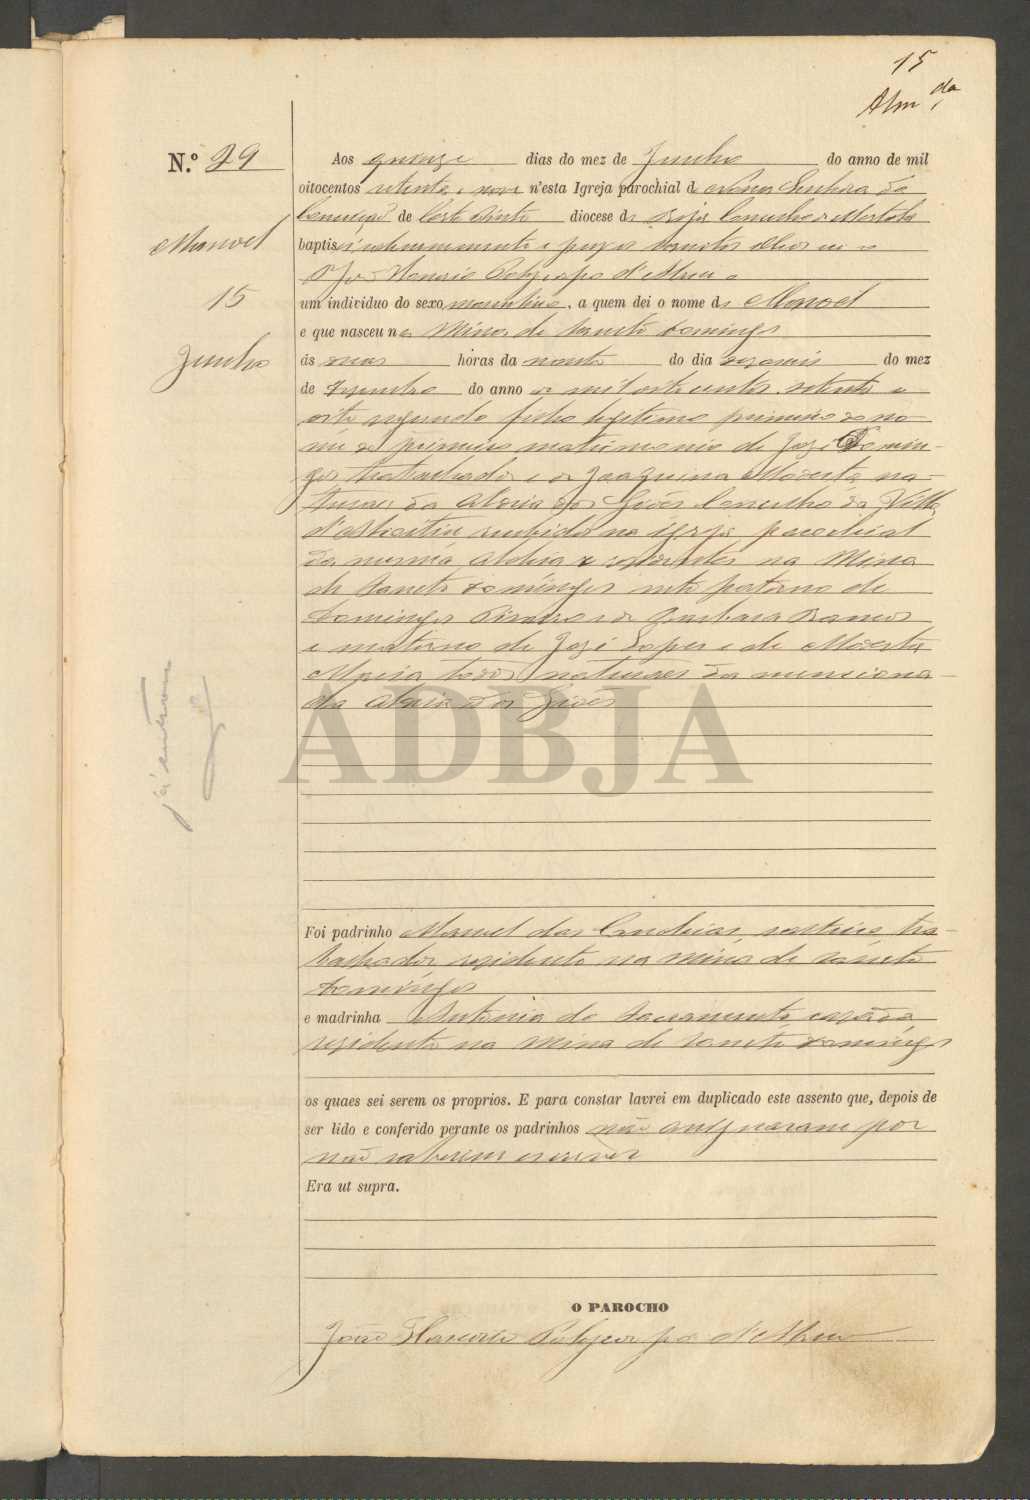 15
Alm da
N.º 29
Manoel
15
Junho
Aos quinze dias do mez de Junho do anno de mil
oitocentos setenta e nove n'esta Igreja parochial de Nossa Senhora da
Conceição de Corte Pinto diocese de Beja Concelho de Mertola
baptisei solemnemente e puz os Sanctos Oleos
d'Abreu
um individuo do sexo masculino, a quem dei o nome de Manoel
e que nasceu na Mina de Sancto Domingo
ás horas da noute do dia do mez
de Dezembro do anno de mil oitocentos setenta e
oito segundo filho legitimo primeiro do no-
me do primeiro matrimonio de José Domin-
gos trabalhador e de Joaquina Modesta na-
turaes da Aldeia dos Giões Concelho da Villa
d'Alcoutim recebidos na Igreja parochial
da mesma Aldeia e rezidentes na Mina
de Sancto Domingos neto paterno de
Domingos e de Barbara Ramos
e materno de José Lopes e de Modesta
Maria todos naturaes da menciona-
da Aldeia dos Giões
já entrou
ADBJA
Foi padrinho Manoel das Candeias, solteiro tra-
balhador rezidente na Mina de Sancto
Domingos
e madrinha Antonia do Sacramento cazada
rezidente na Mina de Sancto Domingos
os quaes sei serem os proprios. E para constar lavrei em duplicado este assento que, depois de
ser lido e conferido perante os padrinhos não assignaram por
não saberem escrever
Era ut supra.
O PAROCHO
João Honorio Polycarpo d'Abreu